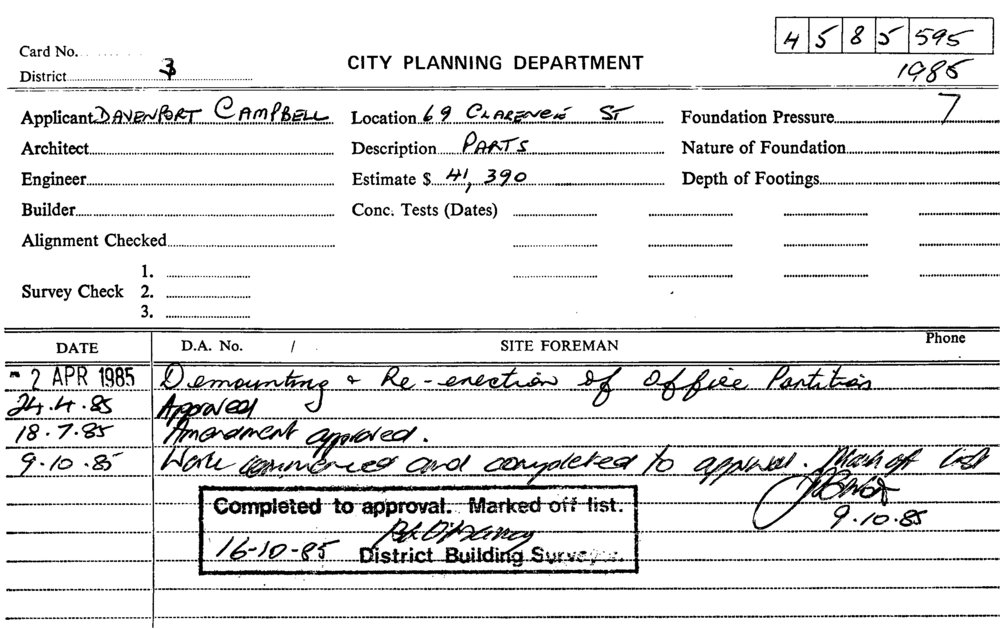 4 5 8 5 595
Card No.
CITY PLANNING DEPARTMENT
1985
District 3
Applicant DAVENPORT CAMPBELL Location 69 CLARENCE ST Foundation Pressure 7
Architect Description PARTS Nature of Foundation
Engineer Estimate $ 41,390 Depth of Footings
Builder Conc. Tests (Dates)
Alignment Checked
1.
Survey Check 2.
3.
DATE D.A. No. / SITE FOREMAN Phone
- 2 APR 1985 Demounting & Re-erection of Office Partition
24.4.85 Approved
18.7.85 Amendment approved.
9.10.85 Work commenced and completed to approval. Mark off list
9.10.85
Completed to approval. Marked off list.
16-10-85 District Building Surveyor.